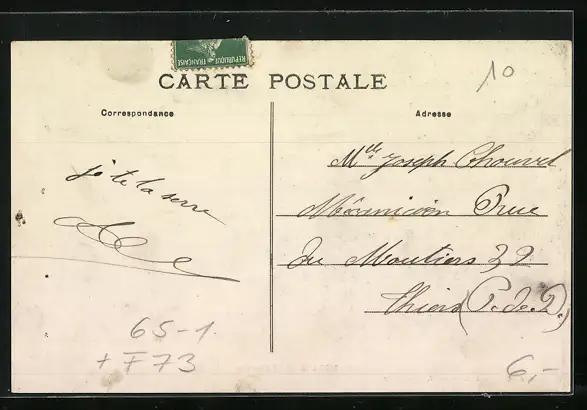 REPUBLIQUE FRANÇAISE
CARTE POSTALE
10
Correspondance
Adresse
je te la serre
Joseph Chouvel
Mécanicien Prue
Du Moutiers 32
Thiers (P.-de-D.)
65-1
+ F 73
6,-